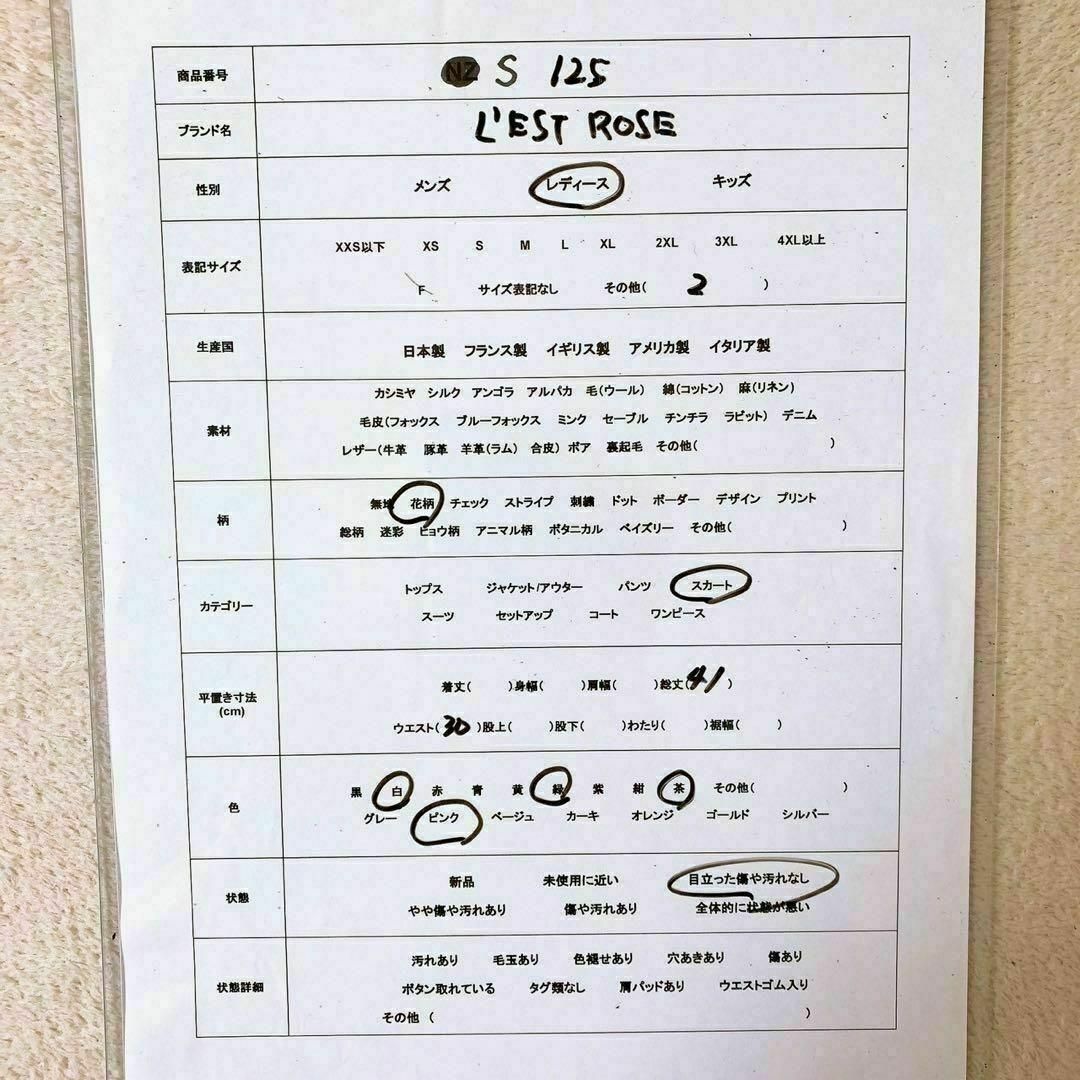 商品番号 NZ S 125
ブランド名 L'EST ROSE
性別 メンズ レディース キッズ
XXS以下 XS S M L XL 2XL 3XL 4XL以上
表記サイズ
F サイズ表記なし その他( 2 )
生産国 日本製 フランス製 イギリス製 アメリカ製 イタリア製
カシミヤ シルク アンゴラ アルパカ 毛(ウール) 綿(コットン) 麻(リネン)
素材 毛皮(フォックス ブルーフォックス ミンク セーブル チンチラ ラビット) デニム
レザー(牛革 豚革 羊革(ラム) 合皮) ボア 裏起毛 その他( )
無地 花柄 チェック ストライプ 刺繍 ドット ボーダー デザイン プリント
柄
総柄 迷彩 ヒョウ柄 アニマル柄 ボタニカル ペイズリー その他( )
トップス ジャケット/アウター パンツ スカート
カテゴリー
スーツ セットアップ コート ワンピース
着丈( )身幅( )肩幅( )総丈( 41 )
平置き寸法
(cm)
ウエスト( 30 )股上( )股下( )わたり( )裾幅( )
黒 白 赤 青 黄 緑 紫 紺 茶 その他( )
色
グレー ピンク ベージュ カーキ オレンジ ゴールド シルバー
新品 未使用に近い 目立った傷や汚れなし
状態
やや傷や汚れあり 傷や汚れあり 全体的に状態が悪い
汚れあり 毛玉あり 色褪せあり 穴あきあり 傷あり
状態詳細 ボタン取れている タグ類なし 肩パッドあり ウエストゴム入り
その他 ( )